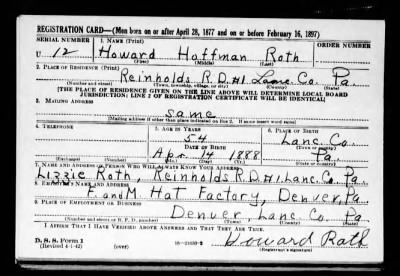 REGISTRATION CARD—(Men born on or after April 28, 1877 and on or before February 16, 1897)
SERIAL NUMBER 1. NAME (Print) ORDER NUMBER
U 12 Howard Hoffman Roth
(First) (Middle) (Last)
2. PLACE OF RESIDENCE (Print)
Reinholds R.D.#1 Lanc. Co. Pa.
(Number and street) (Town, township, village, or city) (County) (State)
[THE PLACE OF RESIDENCE GIVEN ON THE LINE ABOVE WILL DETERMINE LOCAL BOARD
JURISDICTION; LINE 2 OF REGISTRATION CERTIFICATE WILL BE IDENTICAL]
3. MAILING ADDRESS
same
[Mailing address if other than place indicated on line 2. If same insert word same]
4. TELEPHONE 5. AGE IN YEARS 6. PLACE OF BIRTH
54 Lanc. Co.
DATE OF BIRTH (Town or county)
Apr. 14 1888 Pa.
(Exchange) (Number) (Mo.) (Day) (Yr.) (State or country)
7. NAME AND ADDRESS OF PERSON WHO WILL ALWAYS KNOW YOUR ADDRESS
Lizzie Roth, Reinholds R.D.#1. Lanc. Co. Pa.
8. EMPLOYER'S NAME AND ADDRESS
F. and M. Hat Factory, Denver, Pa.
9. PLACE OF EMPLOYMENT OR BUSINESS
Denver, Lanc. Co. Pa.
(Number and street or R. F. D. number) (Town) (County) (State)
I AFFIRM THAT I HAVE VERIFIED ABOVE ANSWERS AND THAT THEY ARE TRUE.
D. S. S. Form 1
(Revised 4-1-42) (over) Howard Roth
(Registrant's signature)